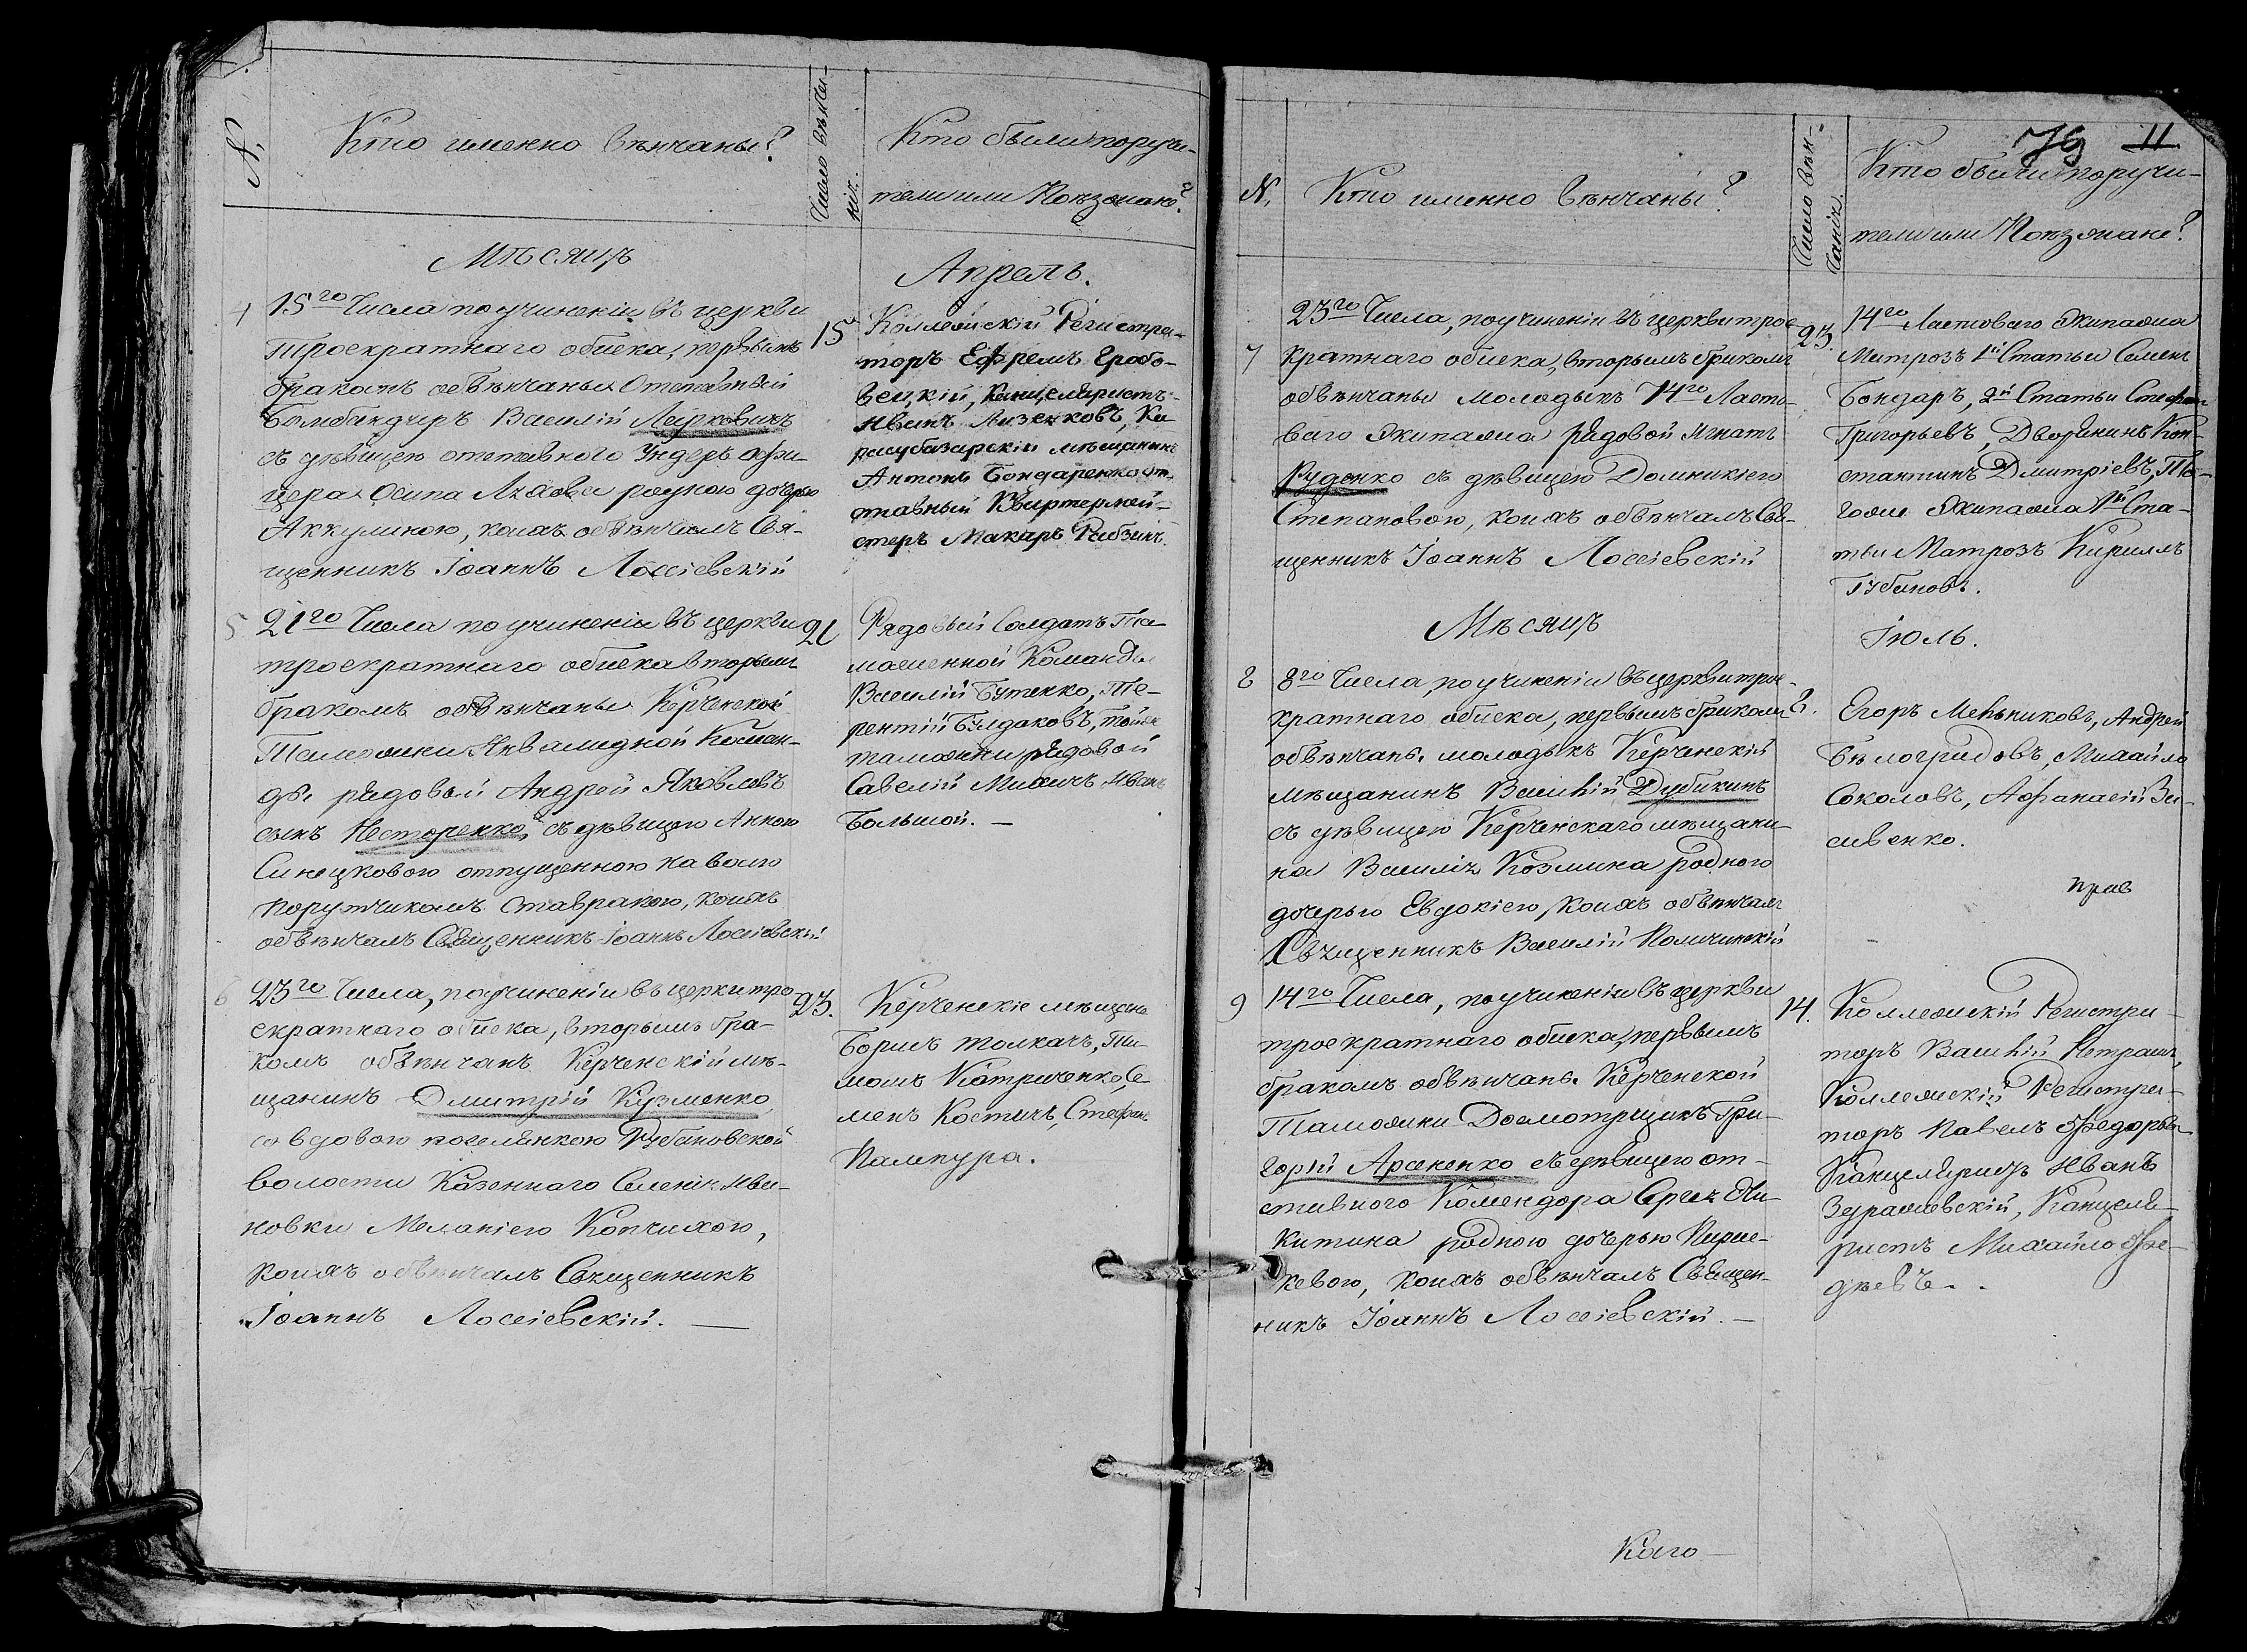 №
Кто именно вѣнчаны?
Число вѣнча-
нія.
Кто были поручи-
тели или Поѣзжане?
Мѣсяцъ
Апрель.
4
15го Числа по учиненіи въ церкви
троекратнаго обыска, первымъ
бракомъ обвѣнчаны Отставный
Бомбандиръ Василій Марковичъ
съ дѣвицею отставного Ундеръ офи-
цера Осипа родною дочерью
Аккулиною, коихъ обвѣнчалъ Свя-
щенникъ Іоаннъ Лоссіевскій
15
Коллежскій Регистра-
торъ Ефремъ Грабо-
вецкій, Канцеляристъ
Иванъ Лизенковъ, Ка
расубазарскій мѣщанинъ
Антонъ Бондаренко, от-
тавный Квартермей-
стеръ Макаръ
5
21го Числа по учиненіи въ церкви
троекратнаго обыска вторымъ
бракомъ обвѣнчаны Керченской
Таможни Инвалидной Коман-
ды рядовый Андрей Яковлевъ
сынъ Несторенко, съ дѣвицею Анною
Синецковою отпущенною на волю
Порутчикомъ Ставракою, коихъ
обвѣнчалъ Священникъ Іоаннъ Лоссіевскій
21
Рядовый Солдатъ Та
моженной Команды
Василій Бутенко, Те-
рентій Булдаковъ, тойже
таможни рядовой
Савелій Иванъ
Большой. —
6
23го Числа, по учиненіи въ церкви тро
екратнаго обыска, вторымъ бра-
комъ обвѣнчанъ Керченскій мѣ-
щанинъ Дмитрій Кузменко
со вдовою поселянкою
волости Казеннаго Селенія Ива-
новки Меланіею Копчихою,
коихъ обвѣнчалъ Священникъ
Іоаннъ Лоссіевскій. —
23.
Керченскіе мѣщане
Борисъ Толкачъ, Ти-
мошъ Катриченко, Се
менъ Костичъ, Стефанъ
Паленура.
79 11
№
Кто именно вѣнчаны?
Число вѣн-
чанія.
Кто были поручи-
тели или Поѣзжане?
7
23го Числа, по учиненіи въ церкви трое
кратнаго обыска, вторымъ бракомъ
обвѣнчаны молодыхъ 14го Ласто-
ваго Экипажа рядовой Игнатъ
Руденко съ дѣвицею Домникіею
Степановою, коихъ обвѣнчалъ Свя-
щенникъ Іоаннъ Лоссіевскій
23.
14го Ластоваго Экипажа
Матрозъ 1й Статьи Семенъ
Бондаръ, 2й Статьи Стефанъ
Григорьевъ, Дворянинъ Кон-
стантинъ Дмитріевъ, То-
гоже Экипажа 1й Ста-
тьи Матрозъ Кириллъ
Губановъ.
Мѣсяцъ
Іюль.
8
8го Числа, по учиненіи въ церкви трое-
кратнаго обыска, первымъ бракомъ
обвѣнчанъ молодыхъ Керченскій
мѣщанинъ Василій Дубикинъ
съ дѣвицею Керченскаго мѣщани-
на Василія Козмина родною
дочерью Евдокіею, коихъ обвѣнчалъ
Священникъ Василій
8.
Егоръ Мельниковъ, Андрей
Бѣлоградовъ, Михайло
Соколовъ, Афанасій Ва-
сивенко.
9
14го Числа, по учиненіи въ церкви
троекратнаго обыска, первымъ
бракомъ обвѣнчанъ Керченской
Таможни Досмотрщикъ Гри-
горій Арсененко съ дѣвицею от-
ставного Комендора Сергея Ни-
китина родною дочерью Парас-
кевою, коихъ обвѣнчалъ Священ-
никъ Іоаннъ Лоссіевскій. —
14.
Коллежскій Регистра-
торъ Василій Петрашъ,
Коллежскій Регистра-
торъ Павелъ Федоровъ
Канцеляристъ Иванъ
Канцеля-
ристъ Михайло Фа-
дѣевъ.
Коего